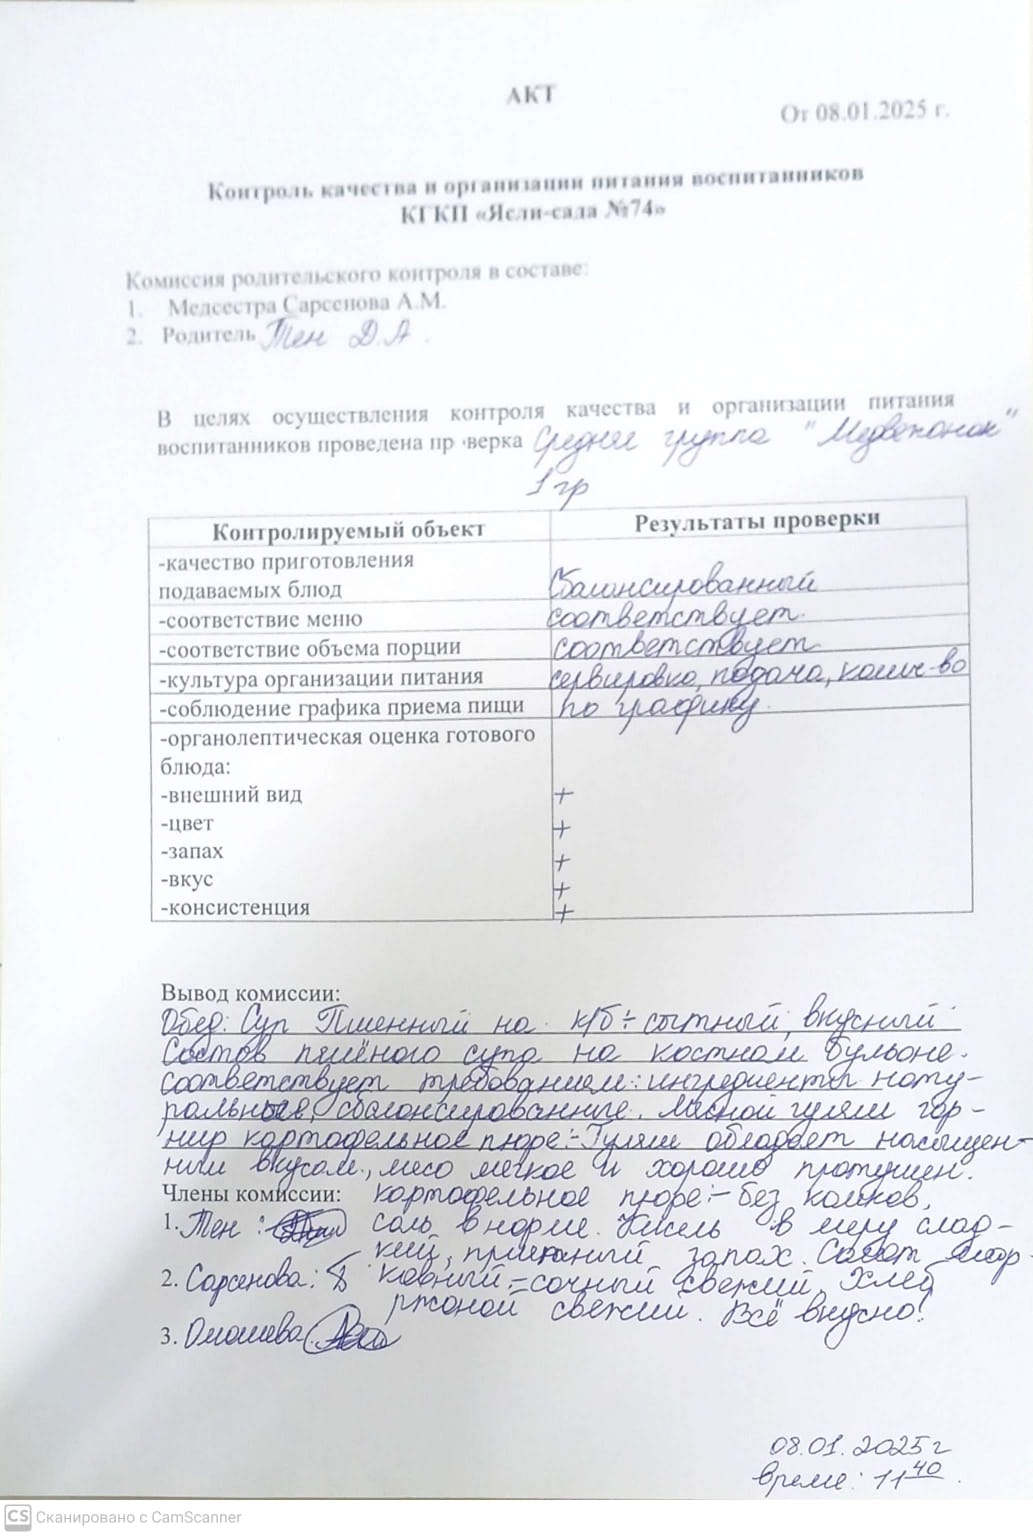 АКТ
От 08.01.2025 г.
Контроль качества и организации питания воспитанников
КГКП «Ясли-сада №74»
Комиссия родительского контроля в составе:
1. Медсестра Сарсенова А.М.
2. Родитель Тен Д.А.
В целях осуществления контроля качества и организации питания
воспитанников проведена пр верка Средняя группа "Медвежонок"
1 гр
Контролируемый объект Результаты проверки
-качество приготовления
подаваемых блюд Сбалансированный
-соответствие меню соответствует.
-соответствие объема порции соответствует
-культура организации питания сервировка, подача, колич-во
-соблюдение графика приема пищи по графику.
-органолептическая оценка готового
блюда:
-внешний вид +
-цвет +
-запах +
-вкус +
-консистенция +
Вывод комиссии:
Обед: Суп Пшенный на к/б: сытный, вкусный
Состав пшёного супа на костном бульоне.
соответствует требованием: ингредиенты нату-
ральные, сбалонсированные. Мясной гуляш гар-
нир картофельное пюре:- Гуляш обладает насыщен-
ным вкусом, мясо мягкое и хорошо протушен.
Члены комиссии: картофельное пюре:- без комков,
1. Тен: соль в норме. Кисель в меру слад-
кий, приятный запах. Салат мор
2. Сарсенова: ковный = сочный свежий, Хлеб
ржаной свежий. Всё вкусно!
3. Омашева
08.01.2025 г
время: 11 40.
CS Сканировано с CamScanner